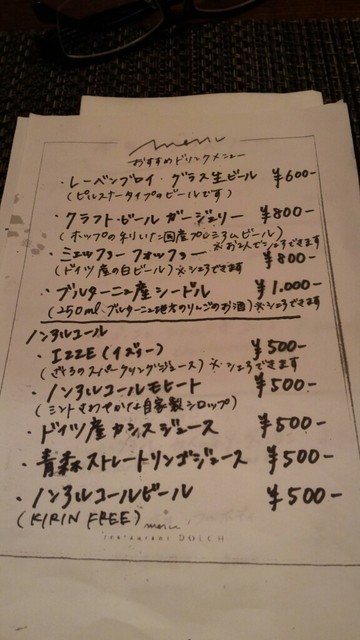 menu
おすすめドリンクメニュー
・レーベンブロイ・グラス生ビール ¥600-
(ピルスナータイプのビールです)
・クラフト・ビール ガージェリー ¥800-
(ホップの利いた国産プレミアムビール)
※お2人でシェアできます
・ミュッフォー フォッフォー ¥800-
(ドイツ産の白ビール) ※シェアできます
・ブルターニュ産シードル ¥1.000-
(250ml ブルターニュ地方のりんごのお酒) ※シェアできます
ノンアルコール
・IZZE(イズィー) ¥500-
(ざくろのスパークリングジュース) ※シェアできます
・ノンアルコールモヒート ¥500-
(ミントさわやかな自家製シロップ)
・ドイツ産カシスジュース ¥500-
・青森ストレートリンゴジュース ¥500-
・ノンアルコールビール ¥500-
(KIRIN FREE)
menu
restaurant